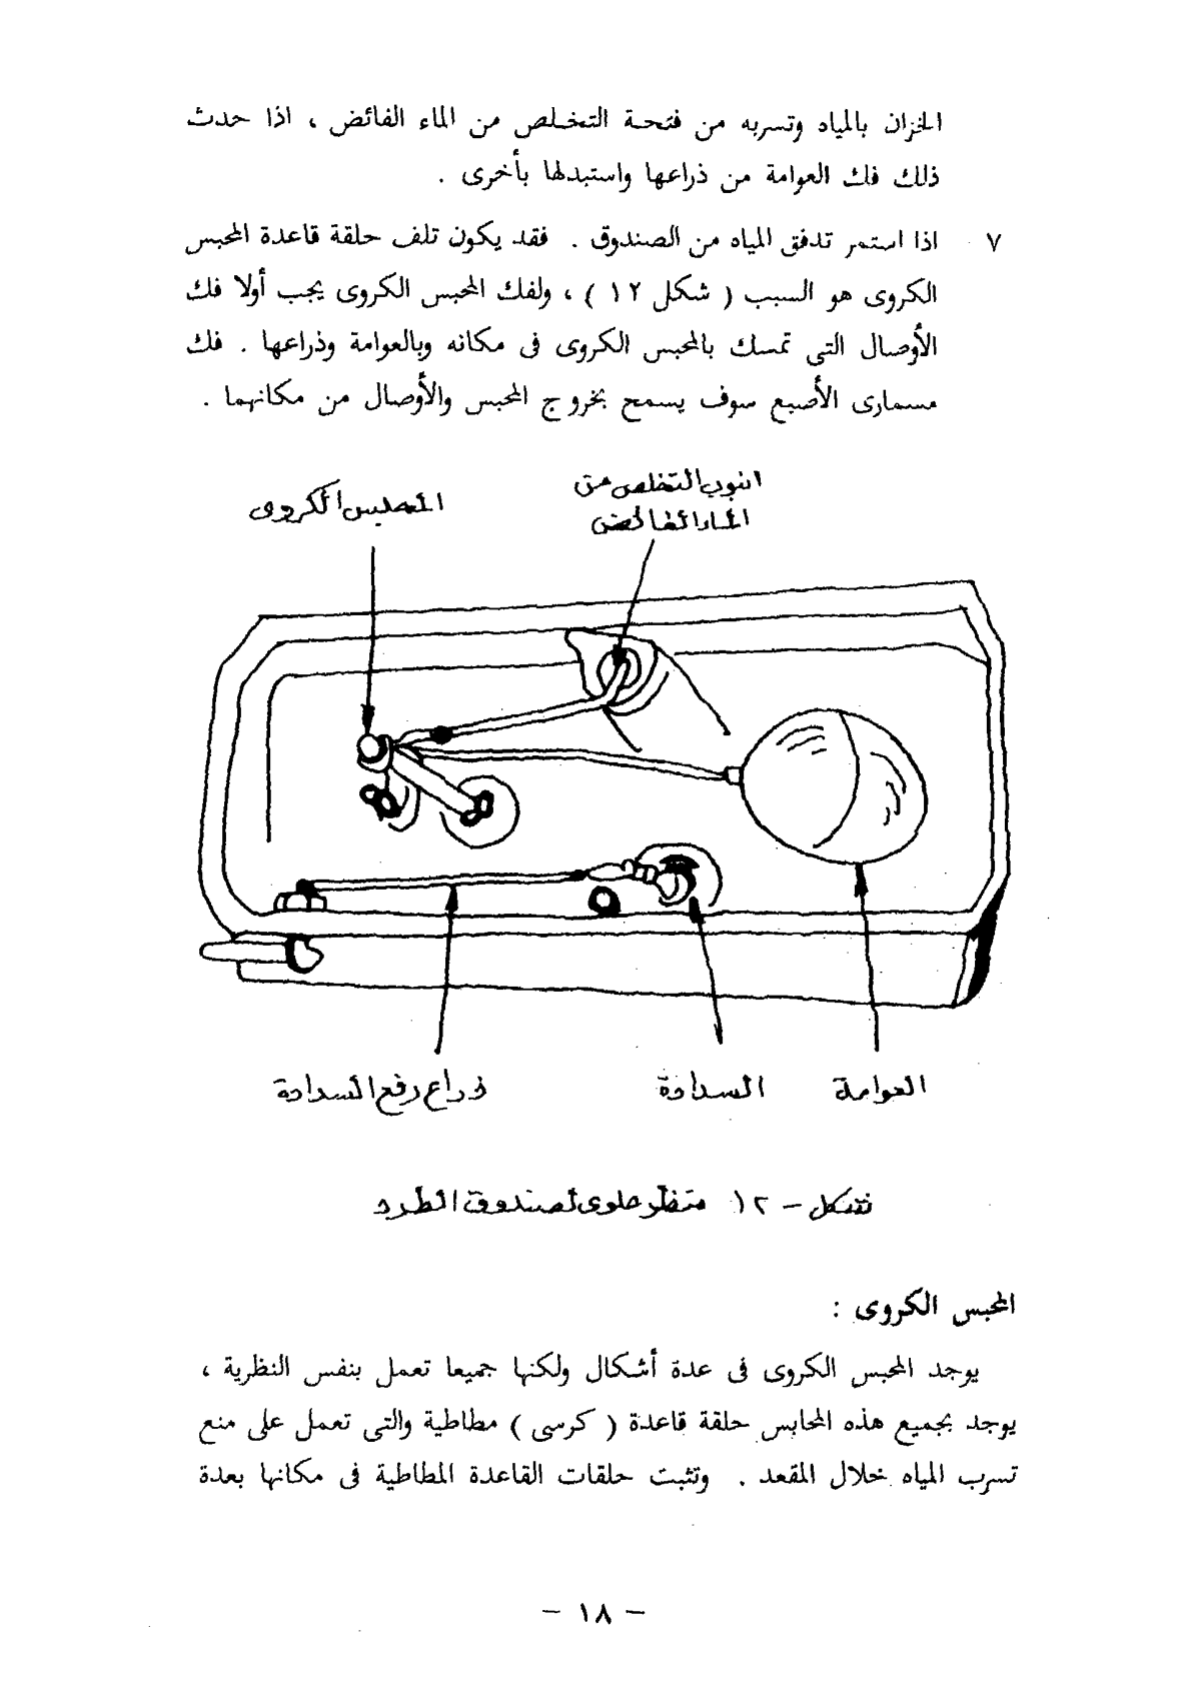 الخزان بالمياه وتسربه من فتحة التخلص من الماء الفائض ، اذا حدث
ذلك فك العوامة من ذراعها واستبدلها بأخرى .
٧ اذا استمر تدفق المياه من الصندوق . فقد يكون تلف حلقة قاعدة المحبس
الكروى هو السبب ( شكل ١٢ ) ، ولفك المحبس الكروى يجب أولا فك
الأوصال التى تمسك بالمحبس الكروى فى مكانه وبالعوامة وذراعها . فك
مسمارى الأصبع سوف يسمح بخروج المحبس والأوصال من مكانهما .
انبوب التخلص من
الماء الفائض
المحبس الكروى
العوامة
السدادة
ذراع رفع السدادة
شكل – ١٢ منظر علوى لصندوق الطرد
المحبس الكروى :
يوجد المحبس الكروى فى عدة أشكال ولكنها جميعا تعمل بنفس النظرية ،
يوجد بجميع هذه المحابس حلقة قاعدة ( كرسى ) مطاطية والتى تعمل على منع
تسرب المياه خلال المقعد . وتثبت حلقات القاعدة المطاطية فى مكانها بعدة
– ١٨ –